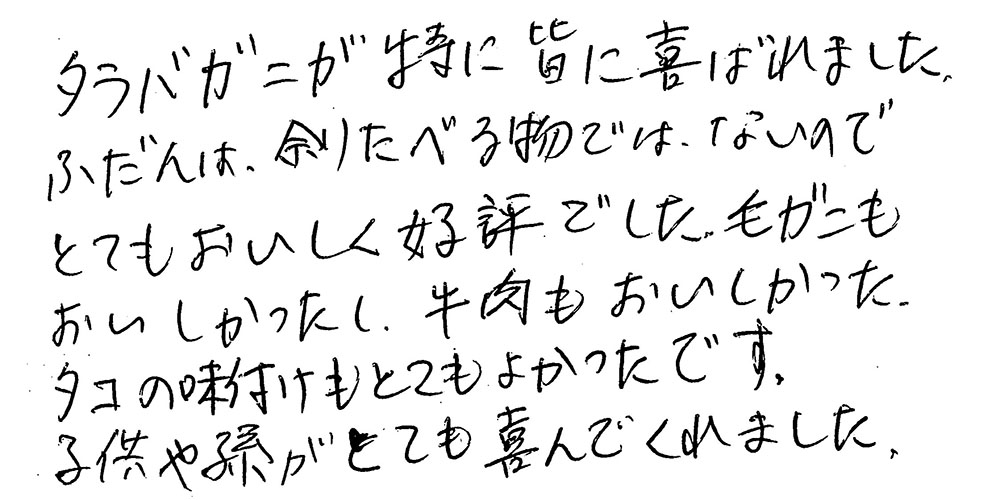 タラバガニが特に皆に喜ばれました。
ふだんは、余りたべる物では、ないので
とてもおいしく好評でした。毛ガニも
おいしかったし、牛肉もおいしかった。
タコの味付けもとてもよかったです。
子供や孫がとても喜んでくれました。